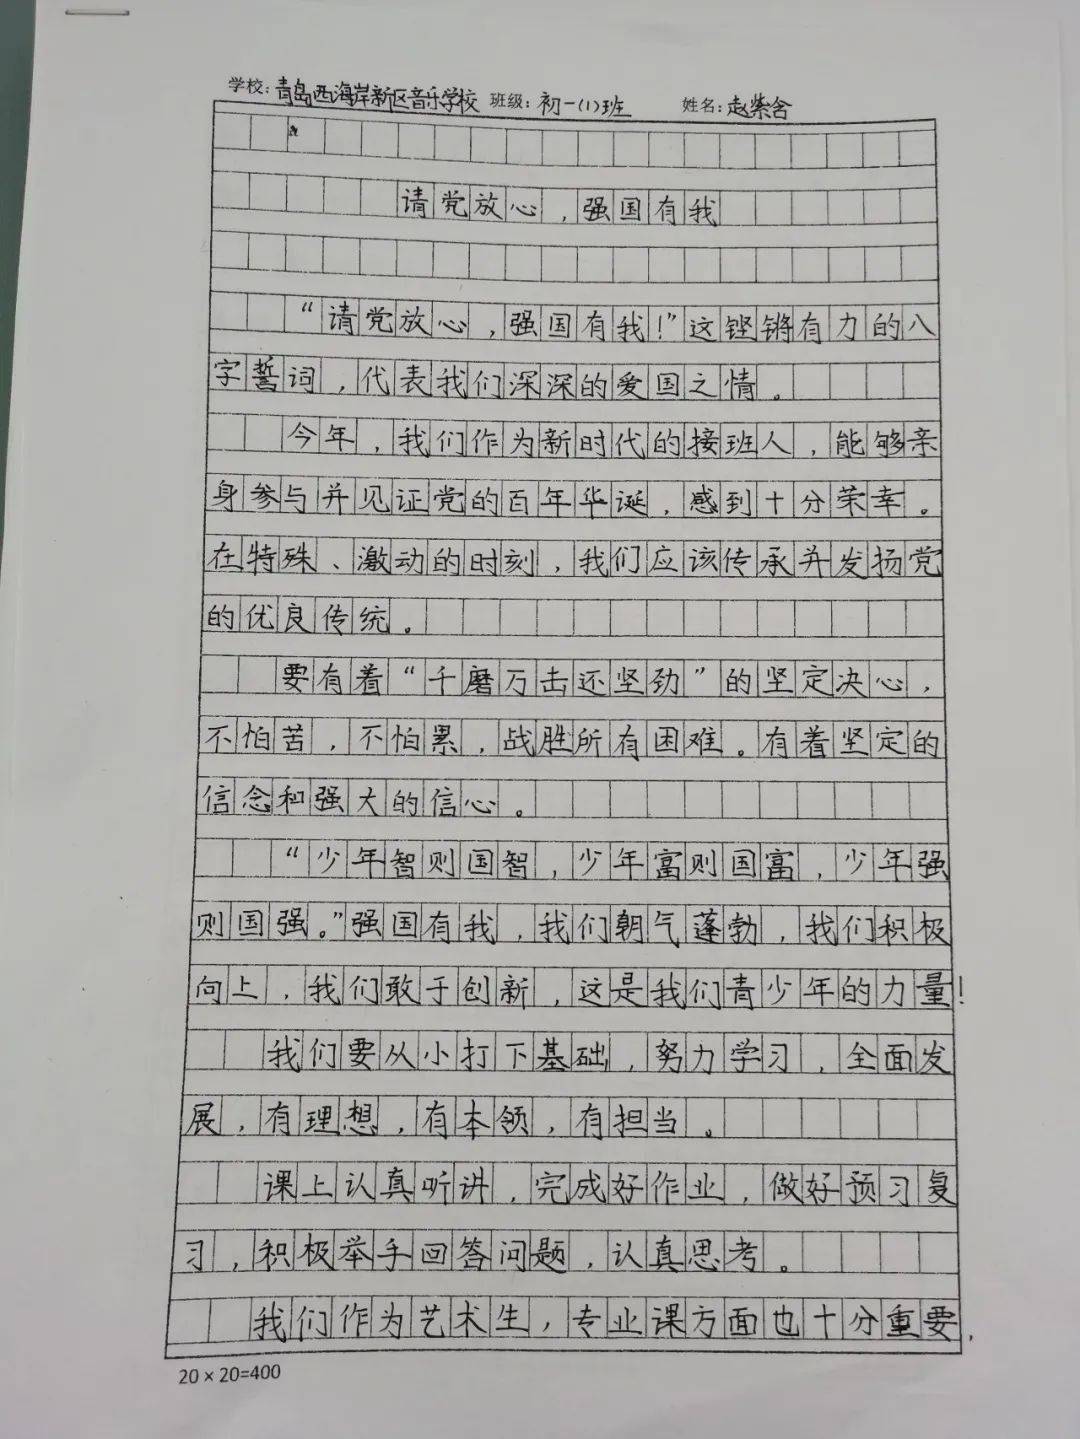 学校：青岛西海岸新区音乐学校 班级：初一（1）班 姓名：赵紫含
请党放心，强国有我
“请党放心，强国有我！”这铿锵有力的八
字誓词，代表我们深深的爱国之情。
今年，我们作为新时代的接班人，能够亲
身参与并见证党的百年华诞，感到十分荣幸。
在特殊、激动的时刻，我们应该传承并发扬党
的优良传统。
要有着“千磨万击还坚劲”的坚定决心，
不怕苦，不怕累，战胜所有困难。有着坚定的
信念和强大的信心。
“少年智则国智，少年富则国富，少年强
则国强。”强国有我，我们朝气蓬勃，我们积极
向上，我们敢于创新，这是我们青少年的力量！
我们要从小打下基础，努力学习，全面发
展，有理想，有本领，有担当。
课上认真听讲，完成好作业，做好预习复
习，积极举手回答问题，认真思考。
我们作为艺术生，专业课方面也十分重要，
20×20=400